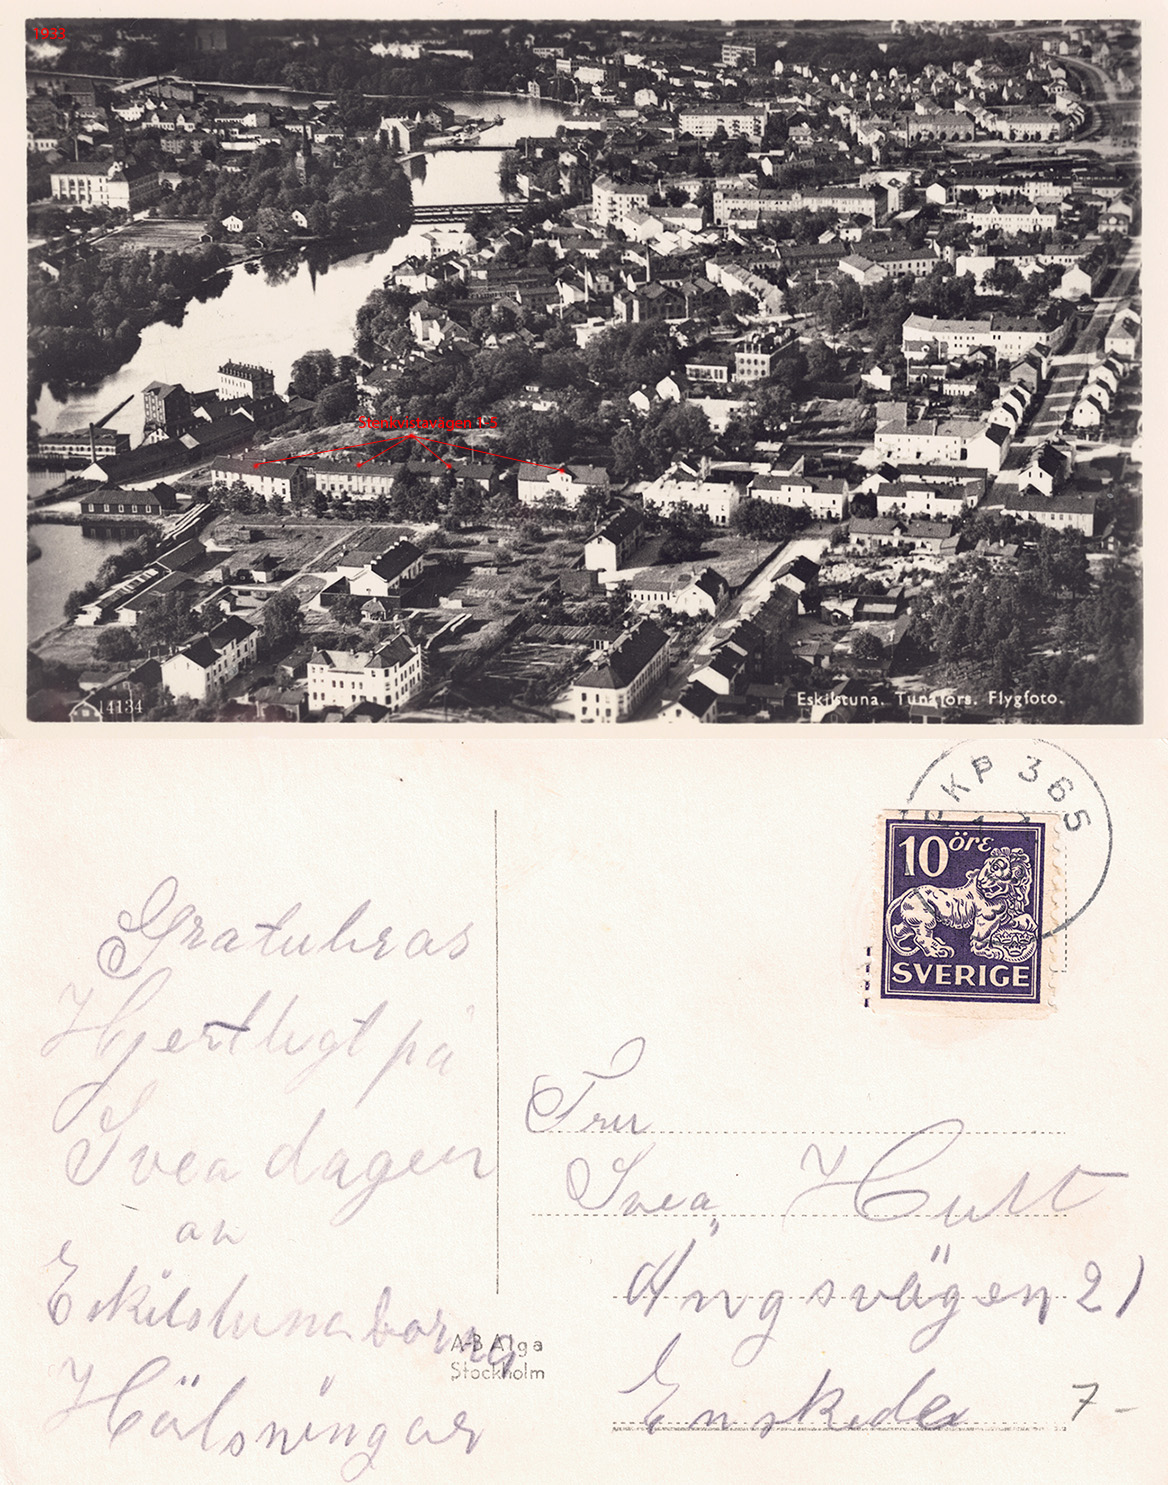 1933
Stenkvistavägen 1-5
14134
Eskilstuna. Tunafors. Flygfoto.
KP 365
10 öre
SVERIGE
Gratuleras
Hjertligt på
Svea dagen
av
Eskilstunaborna
Hälsningar
Fru
Svea Hult
Ängsvägen 21
Enskede
7-
A-B Alga
Stockholm